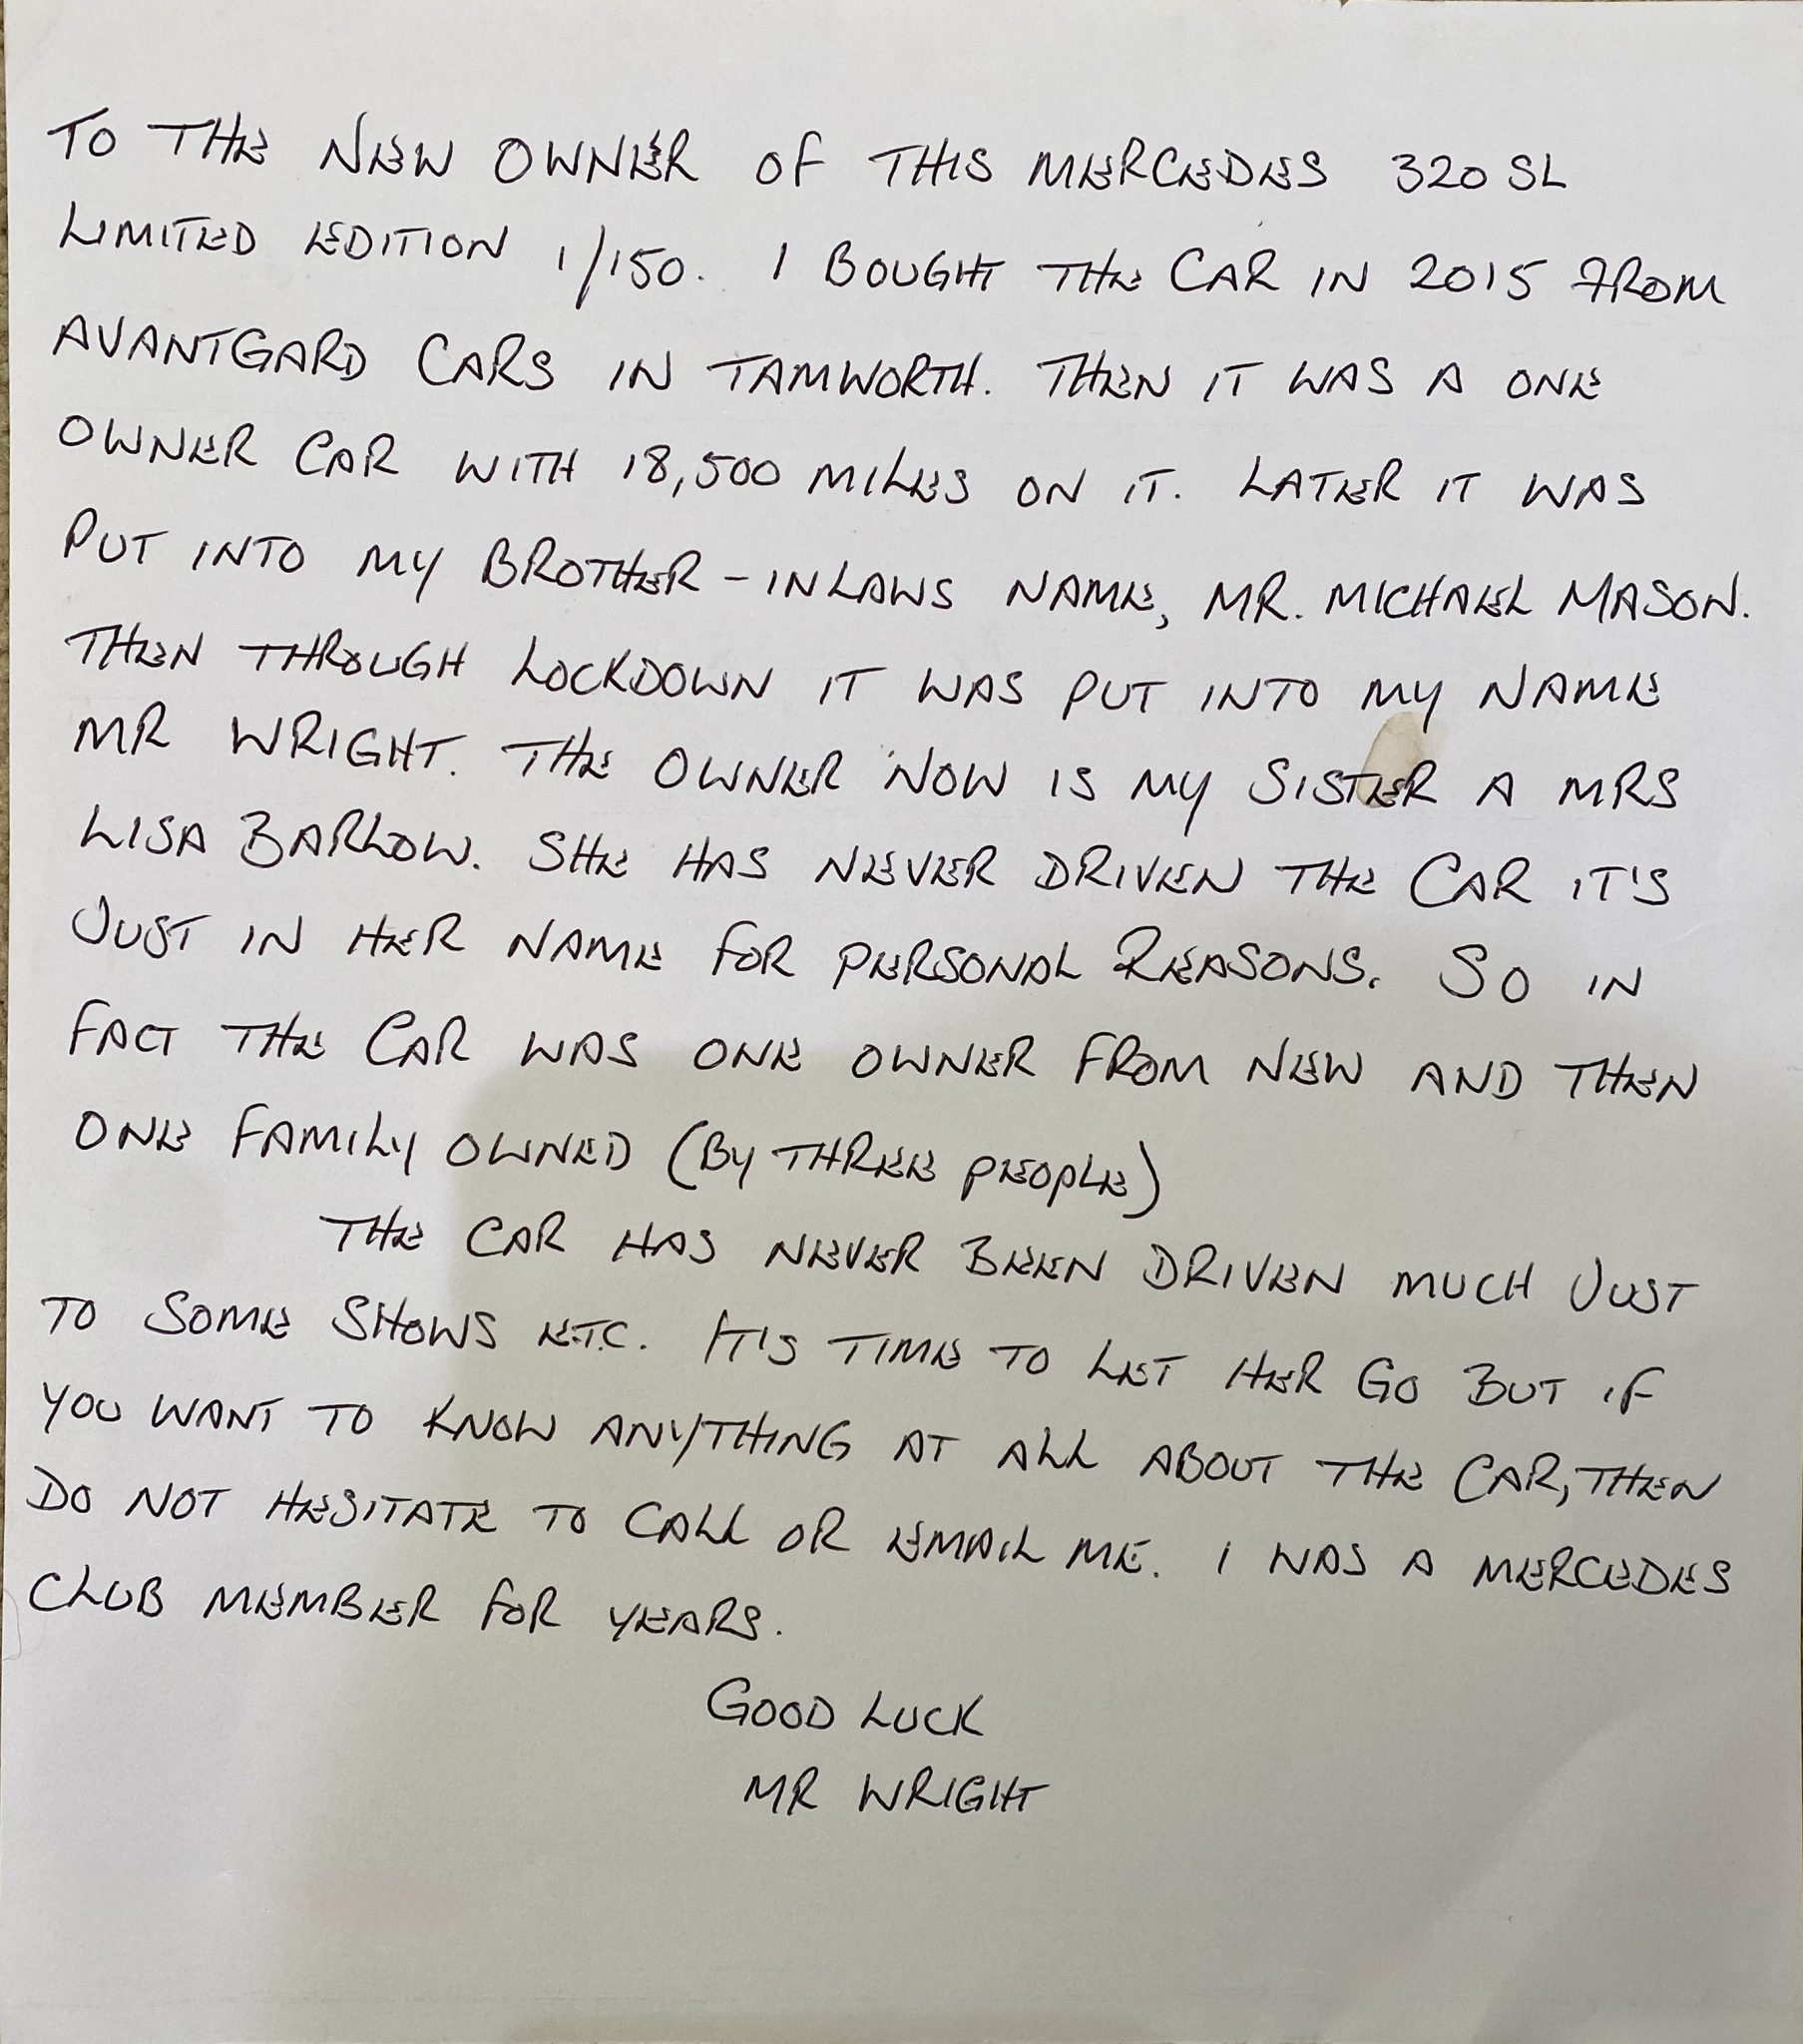 TO THE NEW OWNER OF THIS MERCEDES 320 SL
LIMITED EDITION 1/150. I BOUGHT THE CAR IN 2015 FROM
AVANTGARD CARS IN TAMWORTH. THEN IT WAS A ONE
OWNER CAR WITH 18,500 MILES ON IT. LATER IT WAS
PUT INTO MY BROTHER-INLAWS NAME, MR. MICHAEL MASON.
THEN THROUGH LOCKDOWN IT WAS PUT INTO MY NAME
MR WRIGHT. THE OWNER NOW IS MY SISTER A MRS
LISA BARLOW. SHE HAS NEVER DRIVEN THE CAR IT'S
JUST IN HER NAME FOR PERSONAL REASONS. SO IN
FACT THE CAR WAS ONE OWNER FROM NEW AND THEN
ONE FAMILY OWNED (BY THREE PEOPLE)
THE CAR HAS NEVER BEEN DRIVEN MUCH JUST
TO SOME SHOWS E.T.C. IT'S TIME TO LET HER GO BUT IF
YOU WANT TO KNOW ANYTHING AT ALL ABOUT THE CAR, THEN
DO NOT HESITATE TO CALL OR EMAIL ME. I WAS A MERCEDES
CLUB MEMBER FOR YEARS.
GOOD LUCK
MR WRIGHT